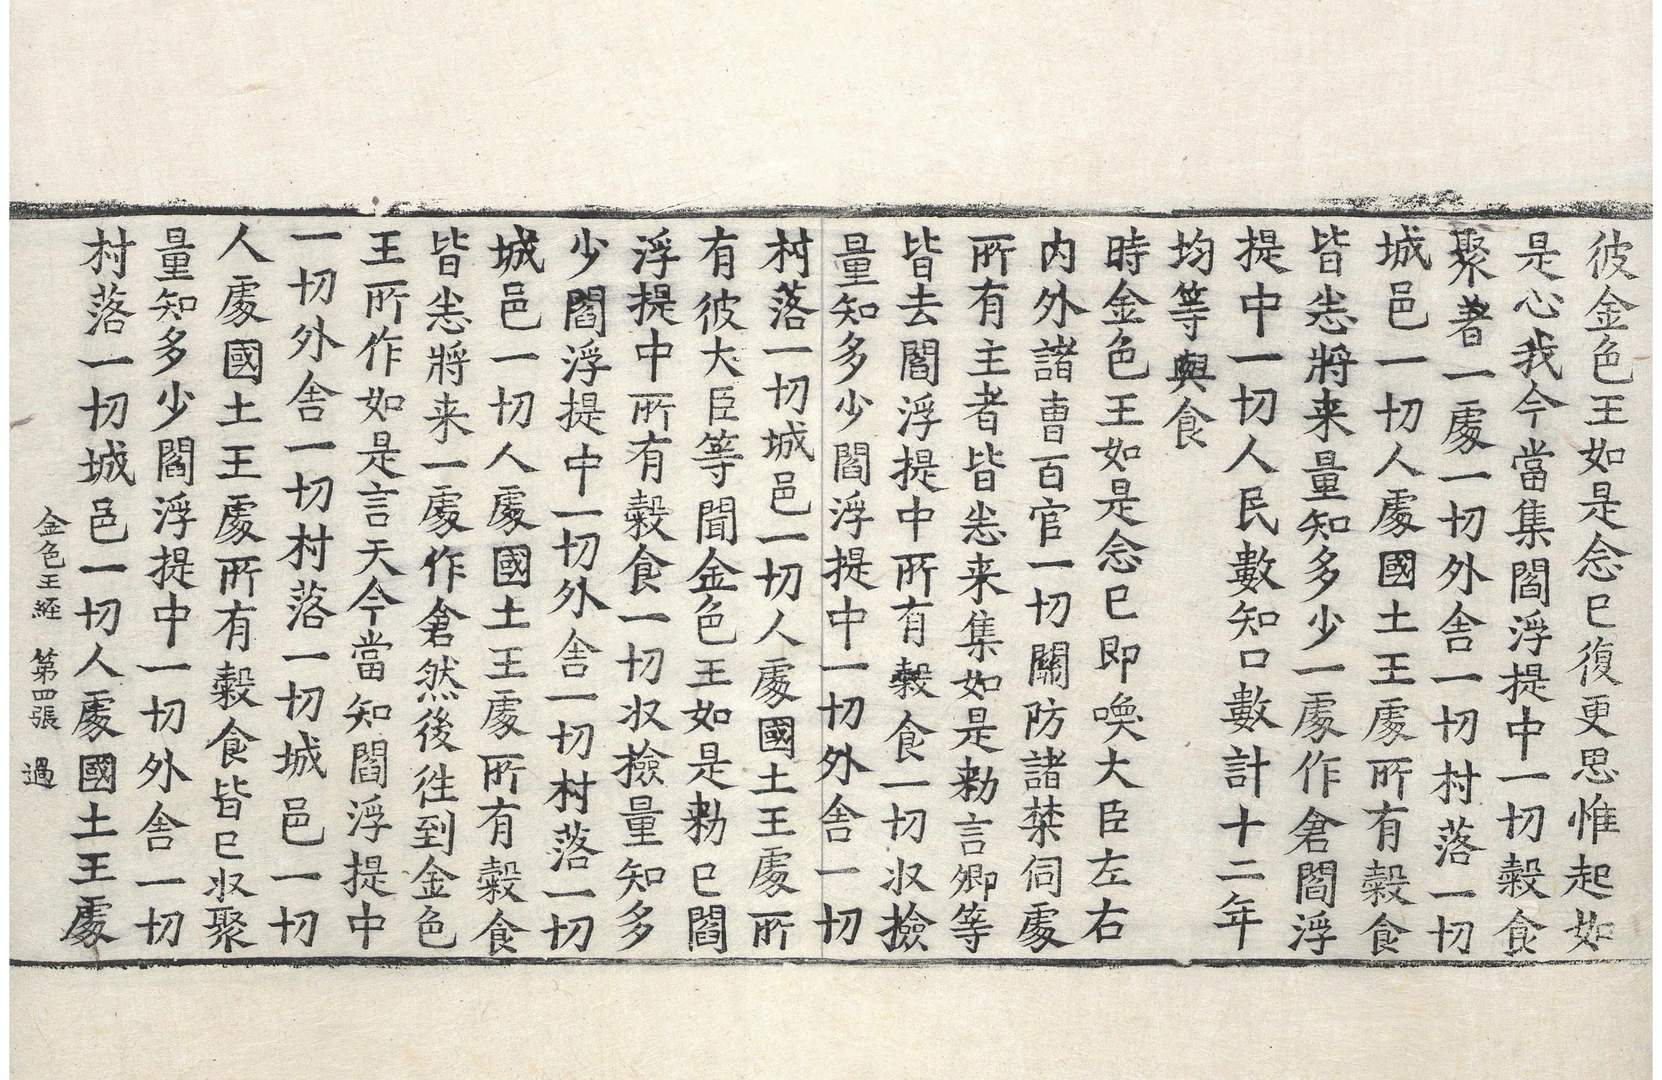 彼金色王如是念已復更思惟起如
是心我今當集閻浮提中一切穀食
聚著一處一切外舍一切村落一切
城邑一切人處國土王處所有穀食
皆悉將来量知多少一處作倉閻浮
提中一切人民數知口數計十二年
均等與食
時金色王如是念已即喚大臣左右
内外諸曺百官一切關防諸禁伺處
所有主者皆悉来集如是勑言卿等
皆去閻浮提中所有穀食一切収撿
量知多少閻浮提中一切外舍一切
村落一切城邑一切人處國土王處所
有彼大臣等聞金色王如是勑已閻
浮提中所有穀食一切収撿量知多
少閻浮提中一切外舍一切村落一切
城邑一切人處國土王處所有穀食
皆悉將来一處作倉然後徃到金色
王所作如是言天今當知閻浮提中
一切外舍一切村落一切城邑一切
人處國土王處所有穀食皆已収聚
量知多少閻浮提中一切外舍一切
村落一切城邑一切人處國土王處
金色王經 第四張 過